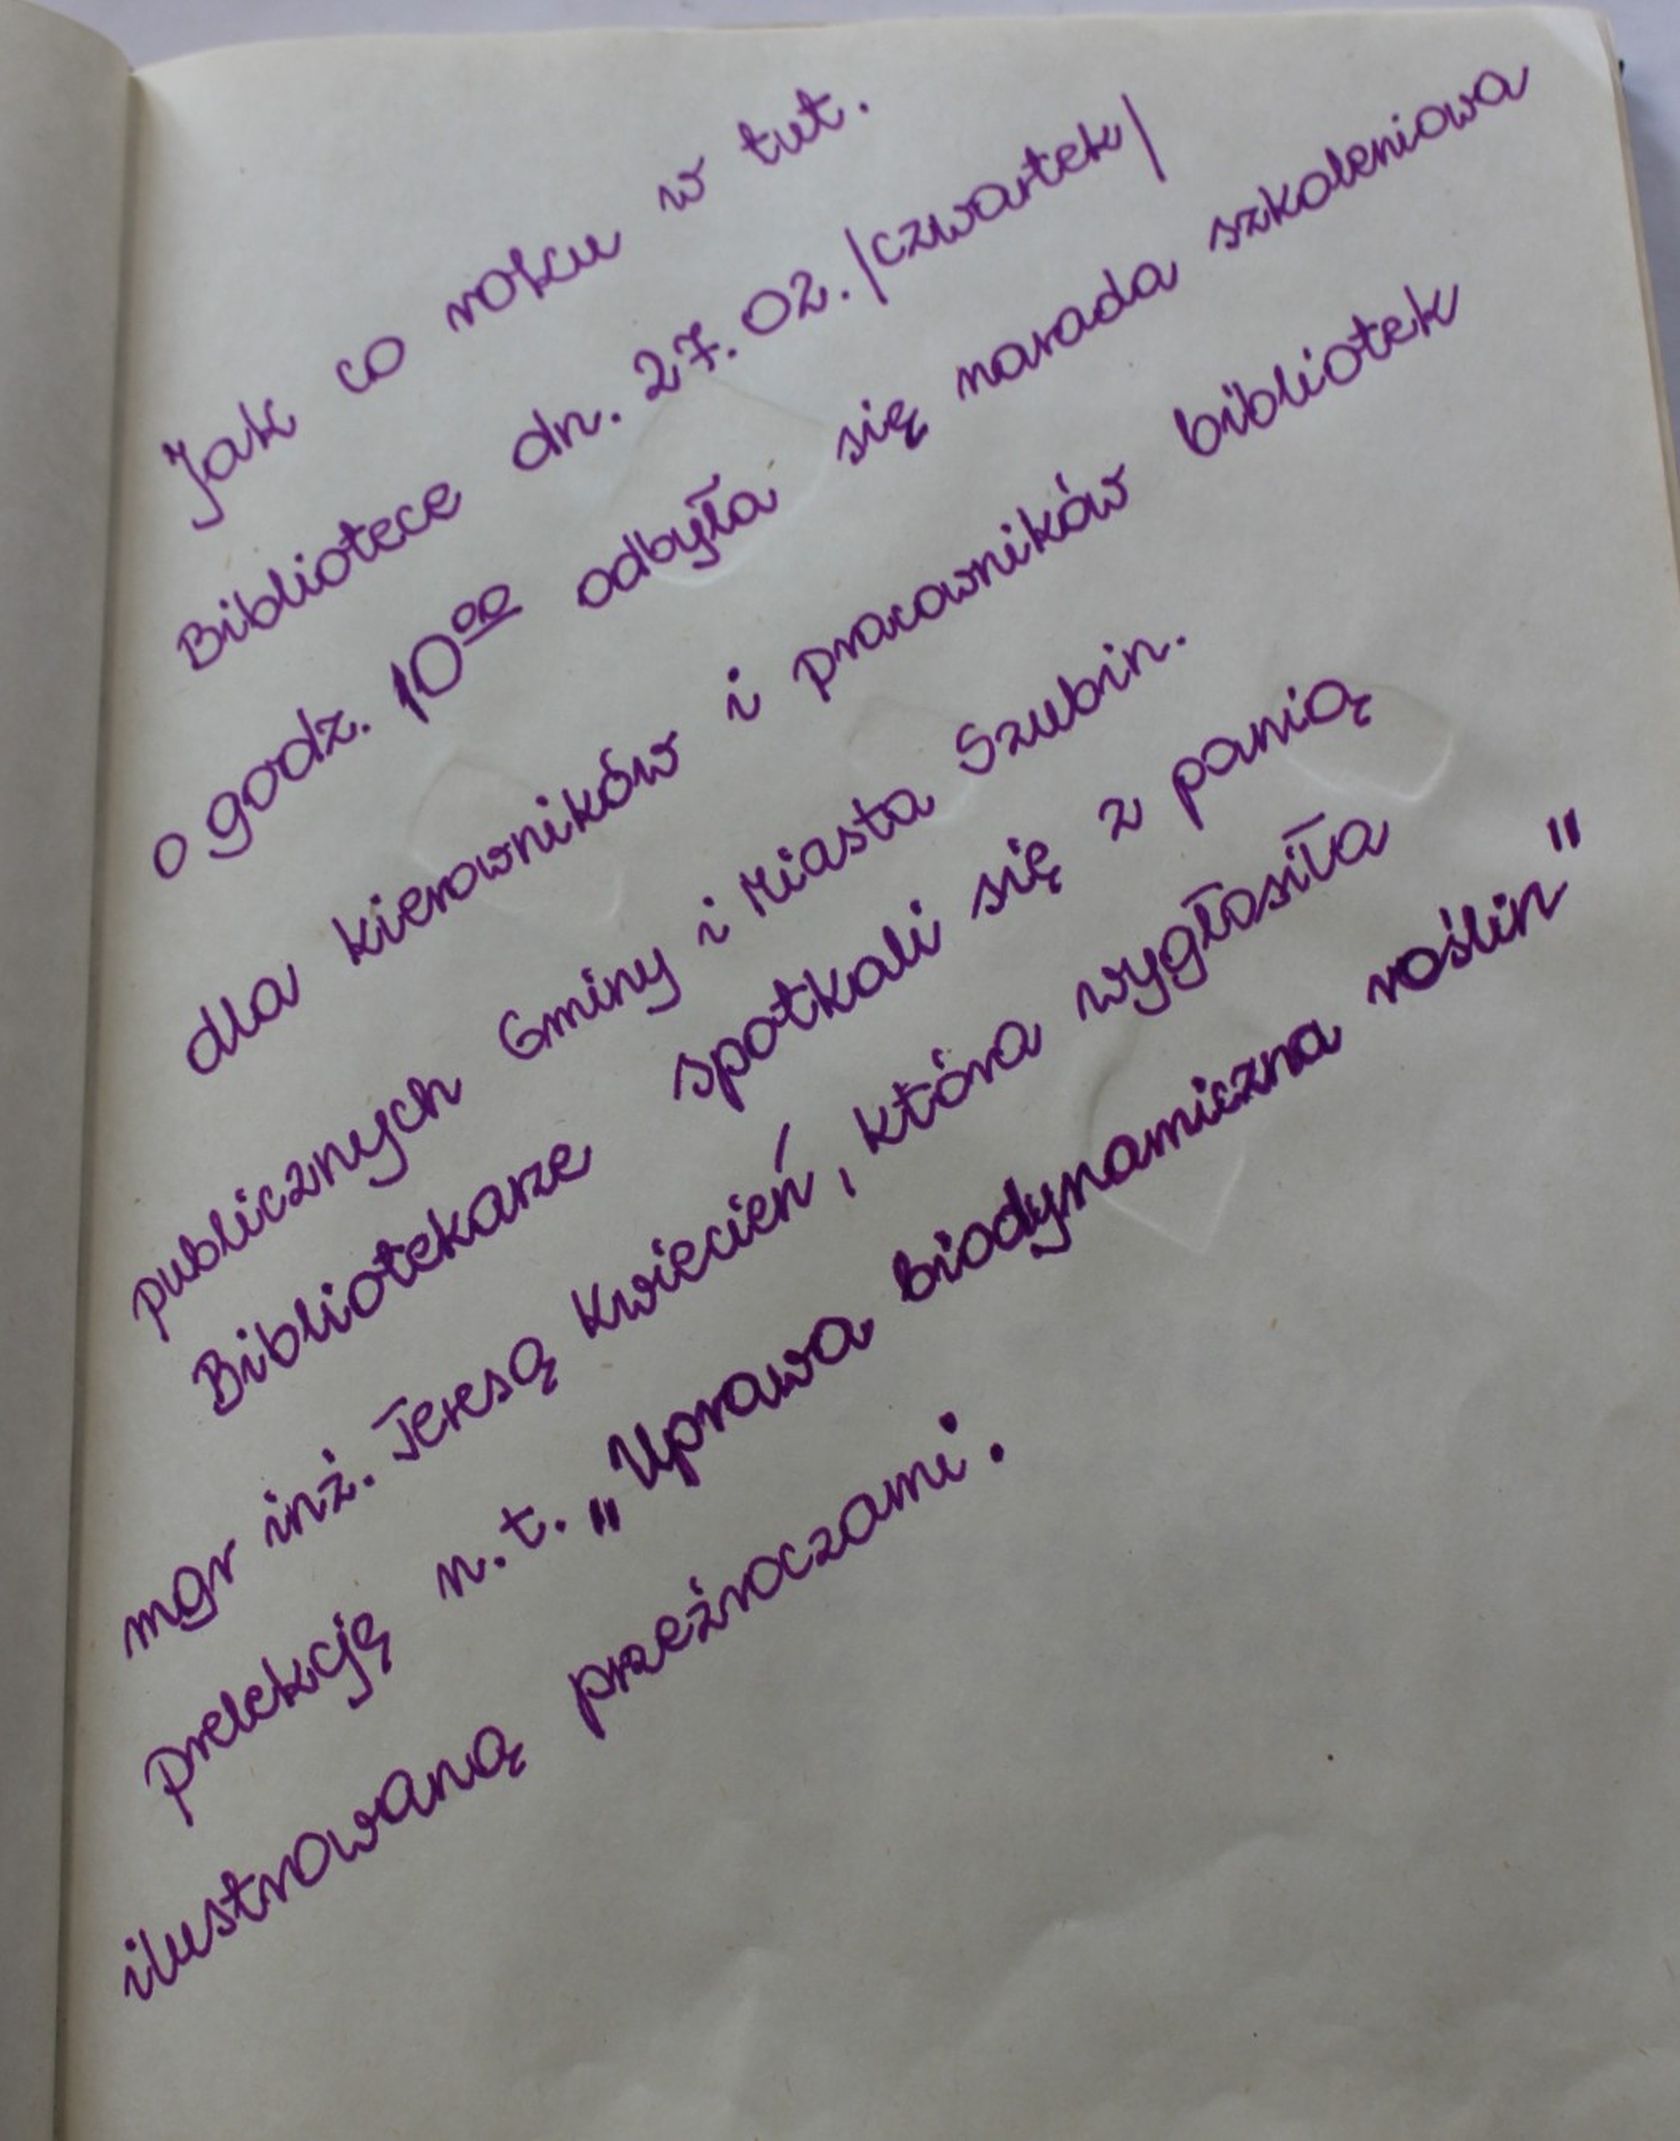 Jak co roku w tut.
Bibliotece dn. 27.02. /czwartek/
o godz. 10⁰⁰ odbyła się narada szkoleniowa
dla kierowników i pracowników bibliotek
publicznych Gminy i Miasta Szubin.
Bibliotekarze spotkali się z panią
mgr inż. Teresą Kwiecień, która wygłosiła
prelekcję n.t. „Uprawa biodynamiczna roślin"
ilustrowaną przeźroczami.